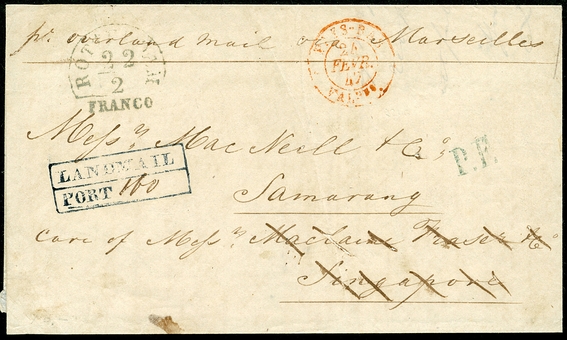 pr overland mail via Marseilles
ROTTERDAM
22
2
FRANCO
PAYS-BAS
24
FEVR.
47
VALENNES
Messrs MacNeill & Co,
P.F.
LANDMAIL
PORT 160
Samarang
care of Messrs Maclaine Fraser & Co
Singapore